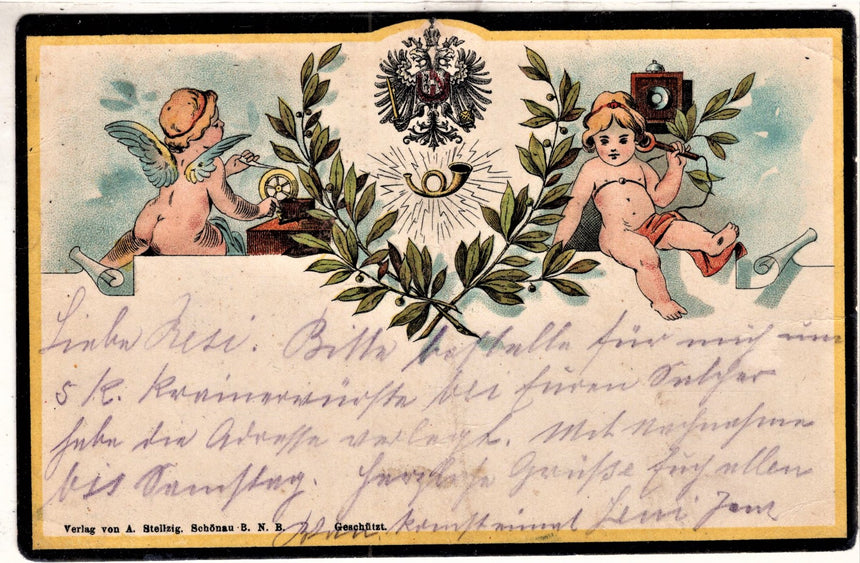 Liebe Resi. Bitte bestelle für mich um
5 K. Krainerwürste bei Euren Selcher
habe die Adresse verlegt. Mit Nachnahme
bis Samstag. Herzliche Grüße Euch allen
Wann kommst einmal
Verlag von A. Stellzig. Schönau B. N. B. Geschützt.